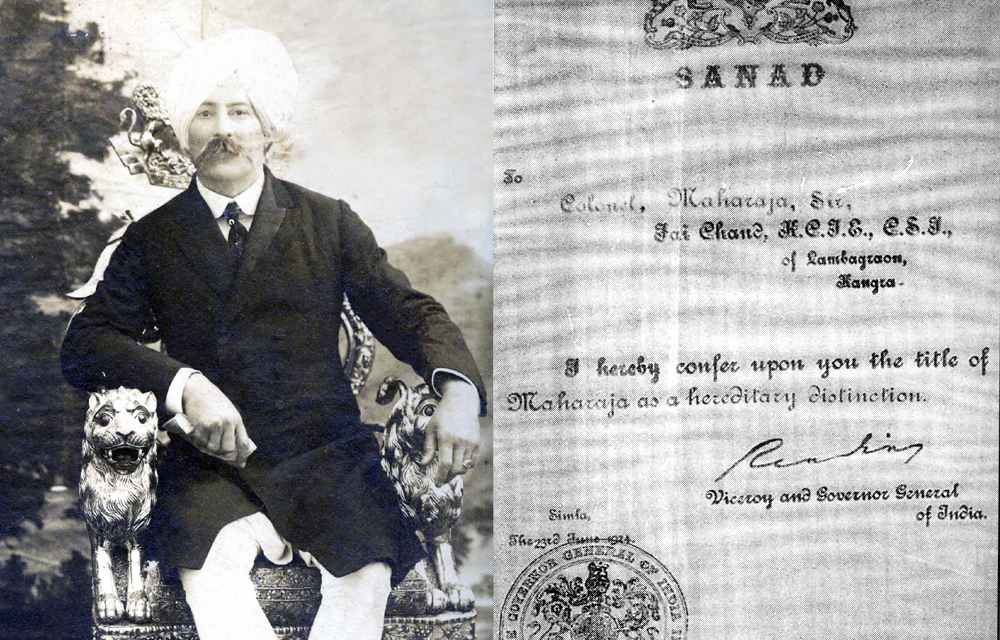 SANAD
To
Colonel, Maharaja, Sir,
Jai Chand, K.C.I.E., C.S.I.,
of Lambagraon,
Kangra-
I hereby confer upon you the title of
Maharaja as a hereditary distinction.
Reading
Viceroy and Governor General
of India.
Simla,
The 23rd June 1924.
E GOVERNOR GENERAL OF INDIA